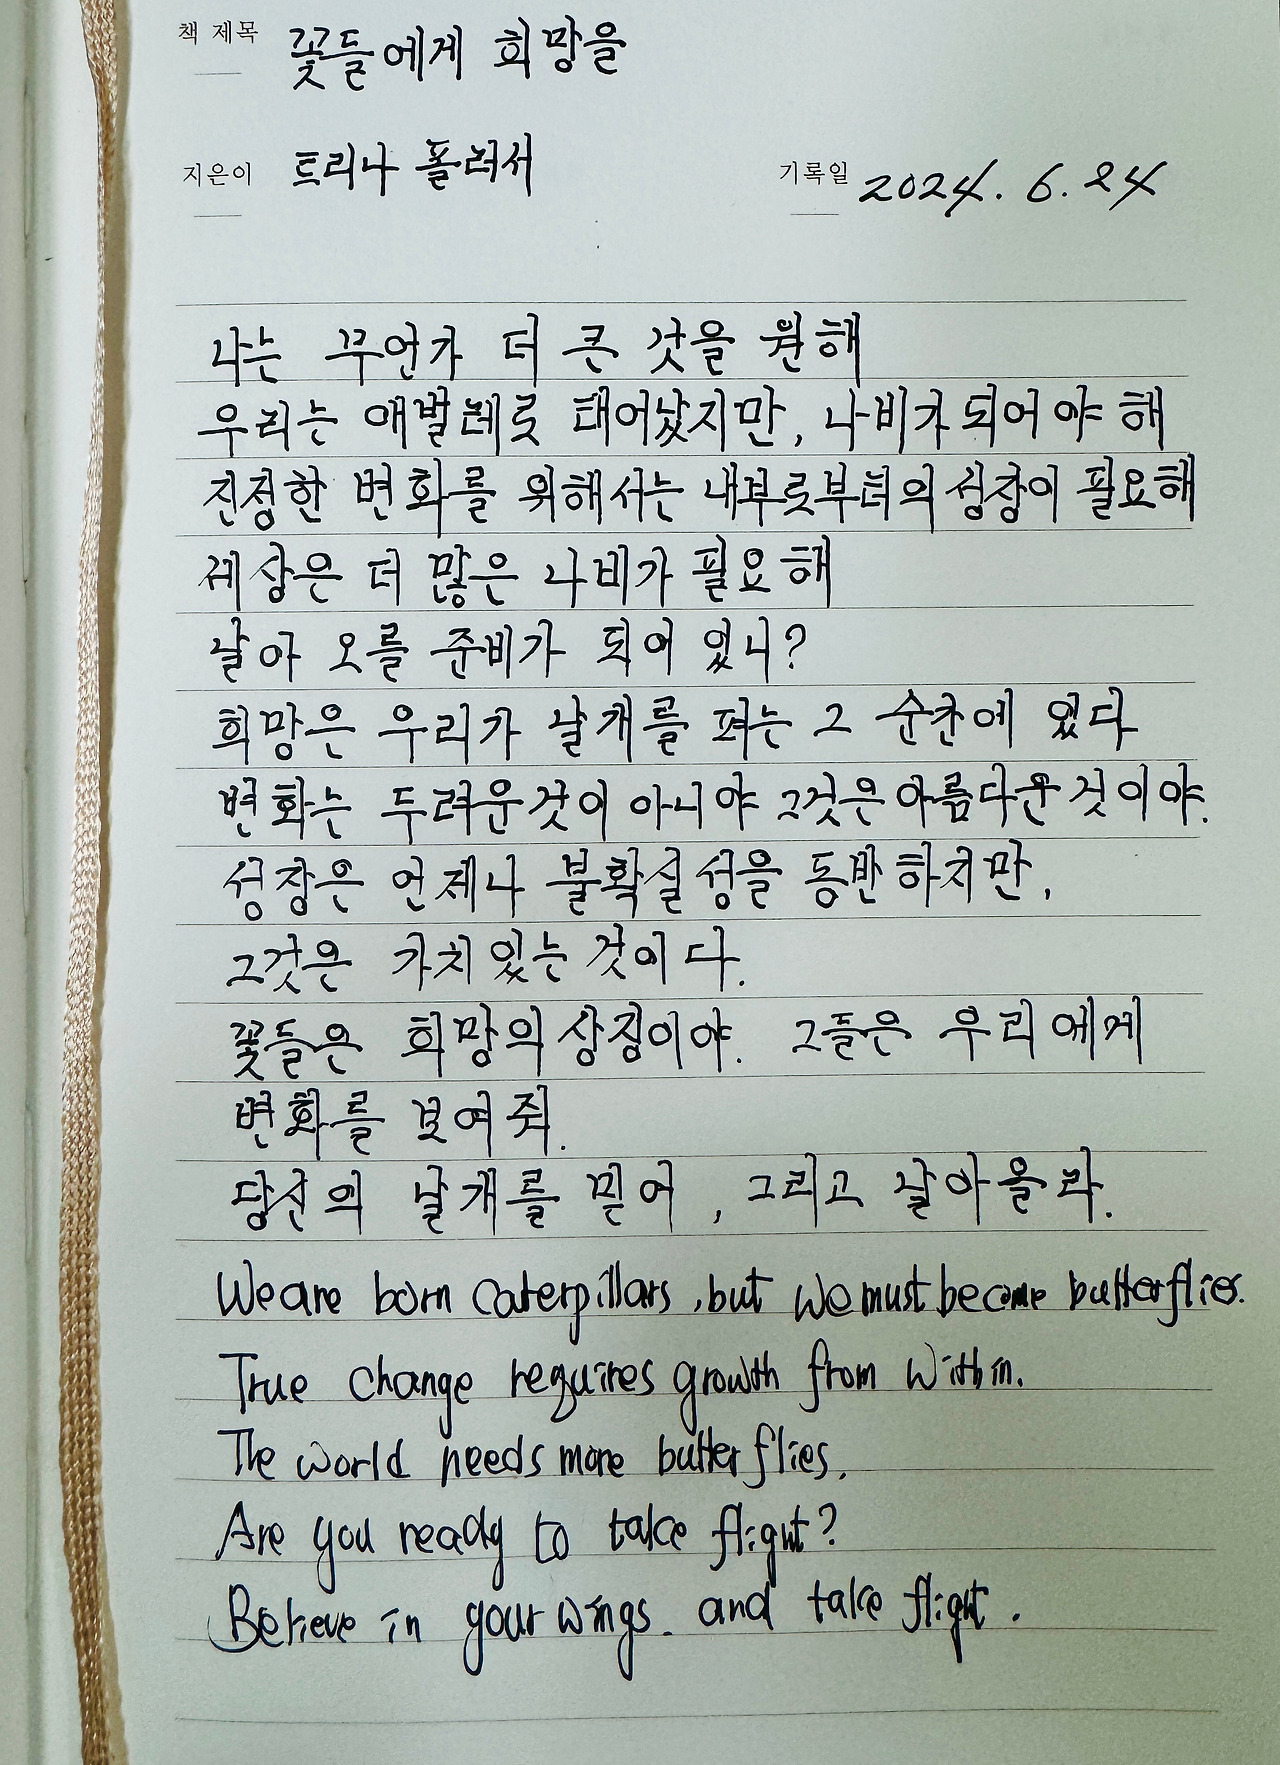 책 제목 꽃들에게 희망을
지은이 트리나 폴러서
기록일 2024. 6. 24
나는 무언가 더 큰 것을 원해
우리는 애벌레로 태어났지만, 나비가 되어야 해
진정한 변화를 위해서는 내부로부터의 성장이 필요해
세상은 더 많은 나비가 필요해
날아 오를 준비가 되어 있니?
희망은 우리가 날개를 펴는 그 순간에 있다
변화는 두려운것이 아니야 그것은 아름다운 것이야.
성장은 언제나 불확실성을 동반하지만,
그것은 가치있는 것이다.
꽃들은 희망의 상징이야. 그들은 우리에게
변화를 보여줘.
당신의 날개를 믿어, 그리고 날아올라.
We are born caterpillars, but we must become butterflies.
True change requires growth from within.
The world needs more butterflies.
Are you ready to take flight?
Believe in your wings. and take flight.